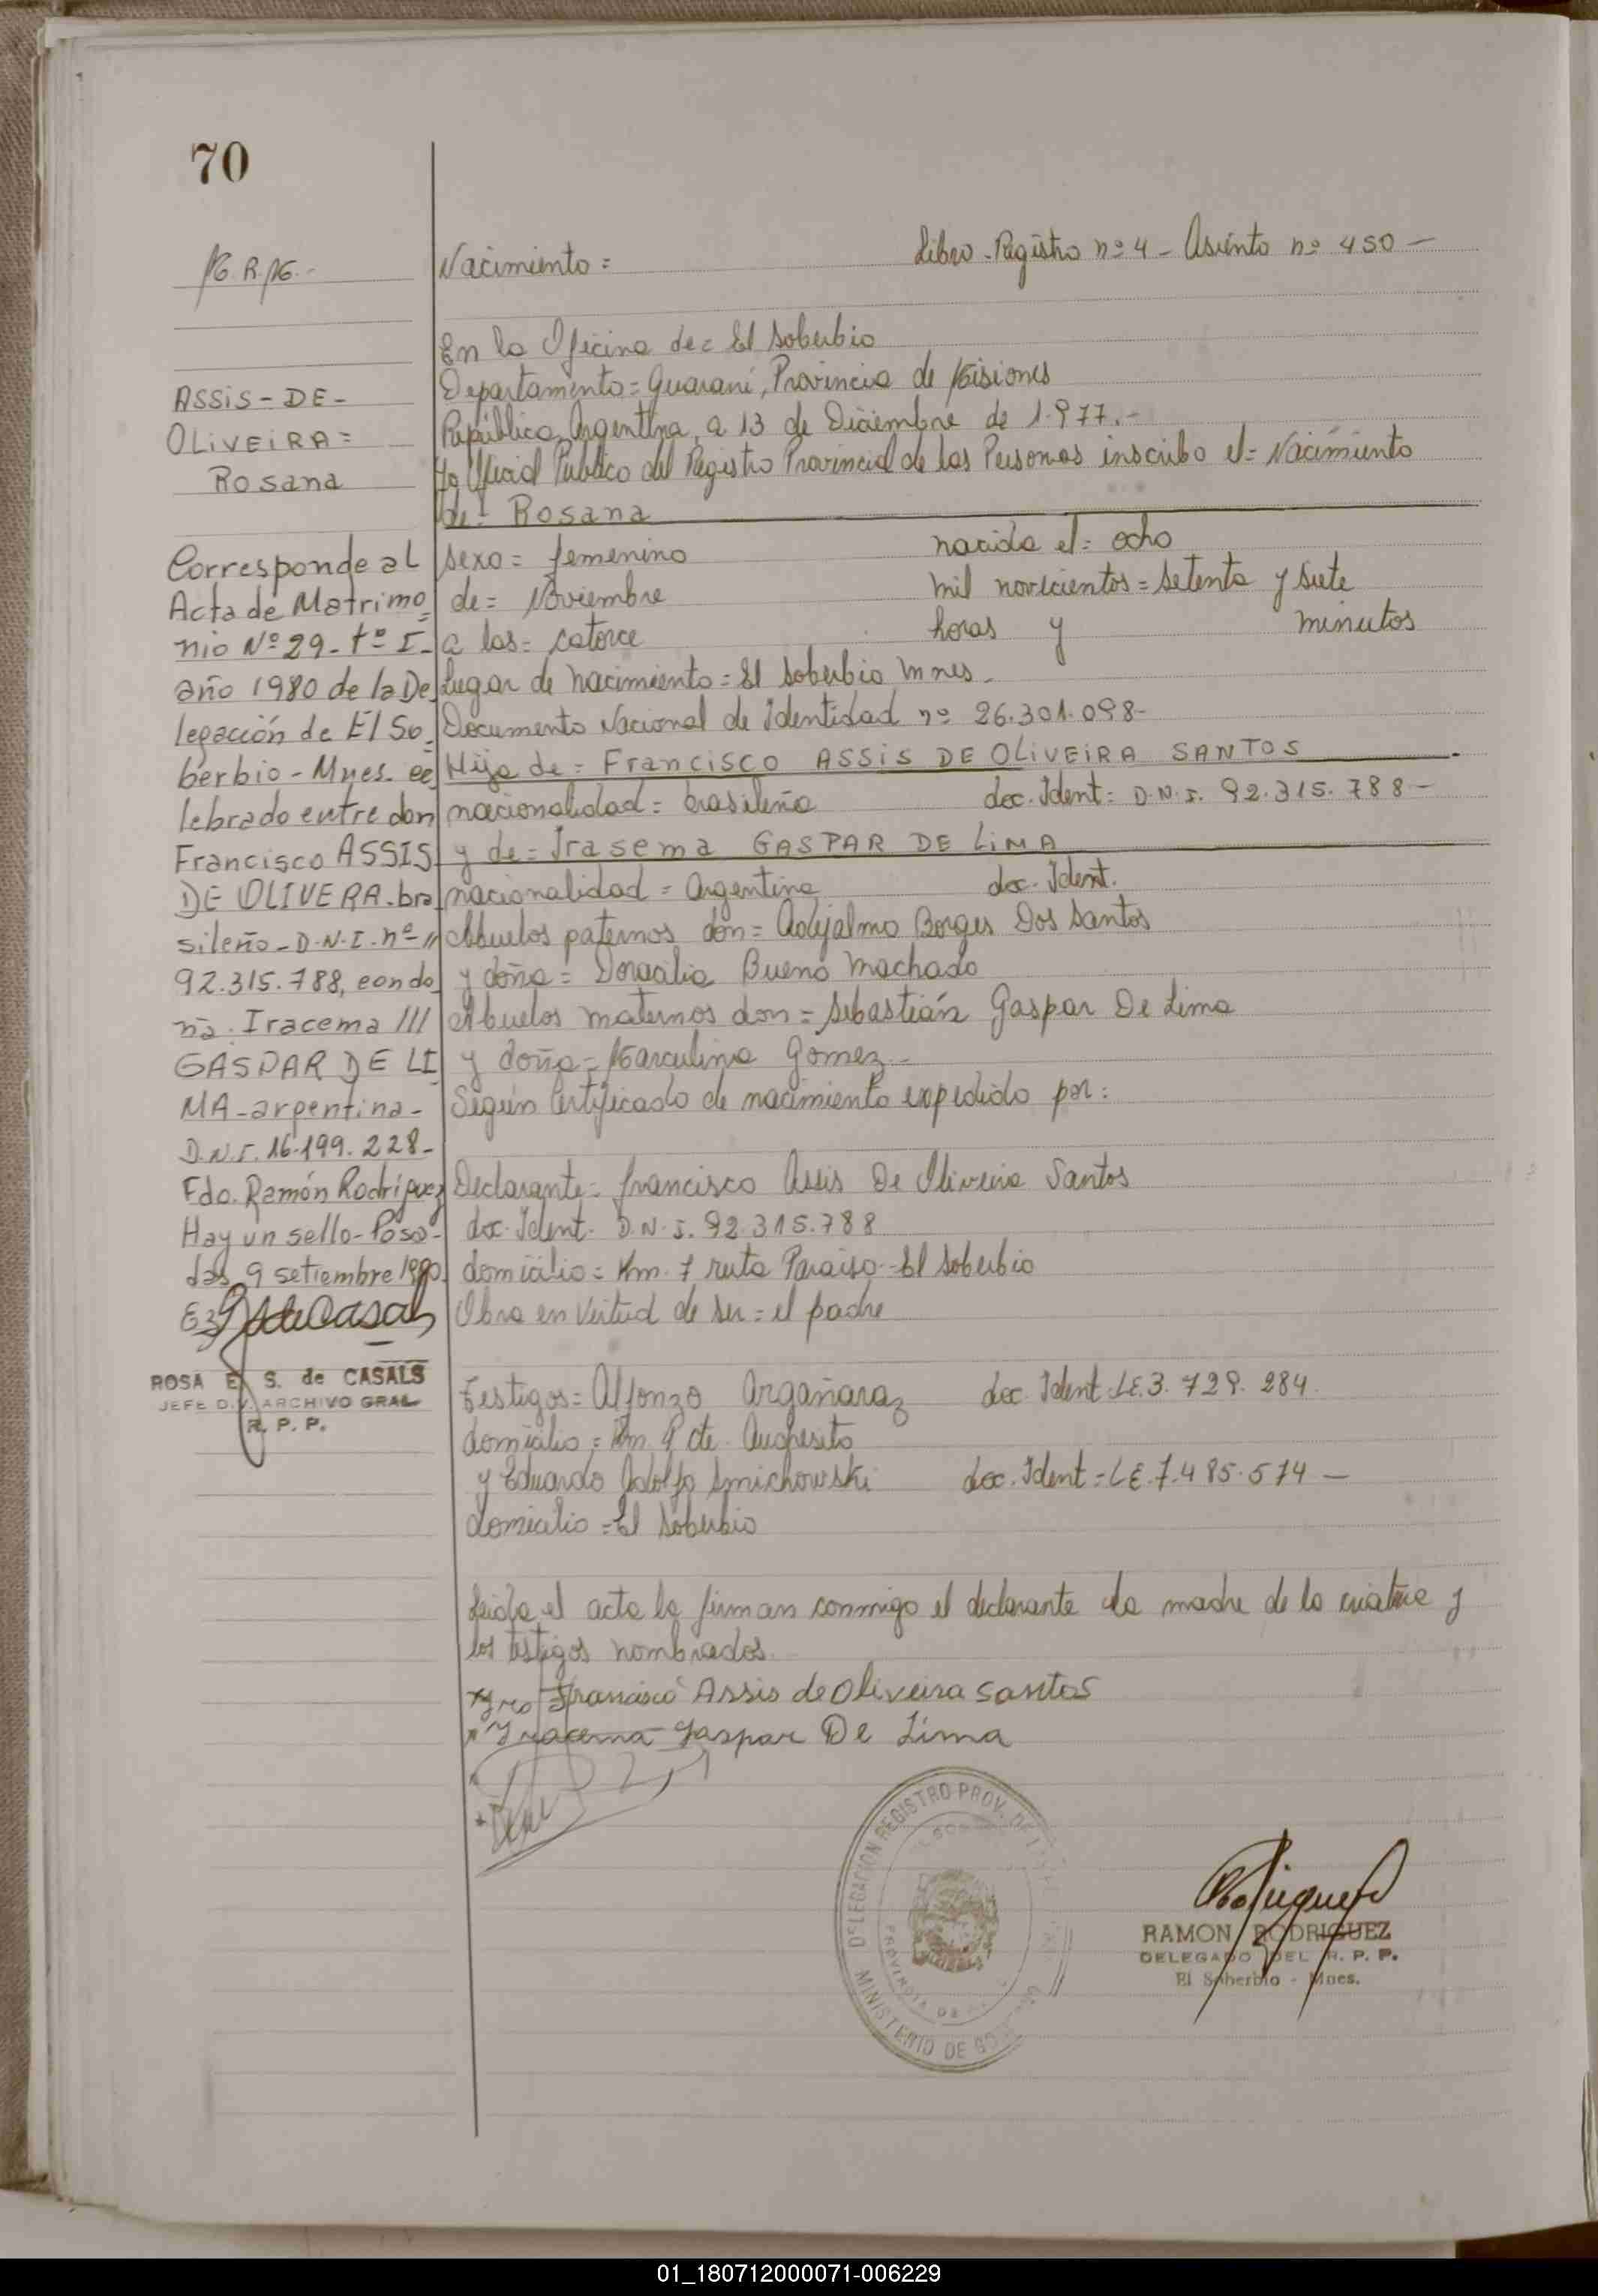 70
Nacimiento = Libro-Registro nº 4 - Asiento nº 450 -
En la Oficina de = El Soberbio
Departamento = Guaraní, Provincia de Misiones
República Argentina, a 13 de Diciembre de 1.977.-
Yo Oficial Público del Registro Provincial de las Personas inscribo el = Nacimiento
de = Rosana
sexo = femenino nacida el = ocho
de = Noviembre mil novecientos = setenta y siete
a las = catorce horas y minutos
Lugar de nacimiento = El Soberbio Mnes.
Documento Nacional de Identidad nº 26.301.098-
Hija de = Francisco ASSIS DE OLIVEIRA SANTOS
nacionalidad = brasileña doc. Ident = D.N.I. 92.315.788-
y de = Irasema GASPAR DE LIMA
nacionalidad = Argentina doc. Ident.
Abuelos paternos don = Borges Dos Santos
y doña = Bueno Machado
Abuelos maternos don = Sebastián Gaspar De Lima
y doña = Marculina Gomez -
Según Certificado de nacimiento expedido por :
Declarante = Francisco Assis De Oliveira Santos
doc. Ident. D.N.I. 92.315.788
domicilio = Km. 7 ruta Paraiso - El Soberbio
Obra en virtud de ser = el padre
Testigos = Alfonzo Argañaraz doc. Ident L.E. 3.729.284.
domicilio = Km.
y Eduardo Adolfo Smichowski doc. Ident = L.E. 7.485.574 -
domicilio = El Soberbio
Leida el acta la firman conmigo el declarante la madre de la y
los testigos nombrados.
Francisco Assis de Oliveira Santos
Iracema Gaspar De Lima
ASSIS-DE-
OLIVEIRA =
Rosana
Corresponde al
Acta de Matrimo
nio Nº 29 - tº I -
año 1980 de la De
legación de El So
berbio - Mnes. ce
lebrado entre don
Francisco ASSIS
DE OLIVERA - bra
sileño - D.N.I. nº //
92.315.788, con do
ña. Iracema ///
GASPAR DE LI
MA - argentina -
D.N.I. 16.199.228 -
Fdo. Ramón Rodriguez
Hay un sello - Posa-
das, 9 setiembre 1980.
ROSA E. S. de CASALS
JEFE DIV. ARCHIVO GRAL
R. P. P.
DELEGACION REGISTRO PROV. DE
PROVINCIA DE
MINISTERIO DE
RAMON RODRIGUEZ
DELEGADO DEL R. P. P.
El Soberbio - Mnes.
01_180712000071-006229